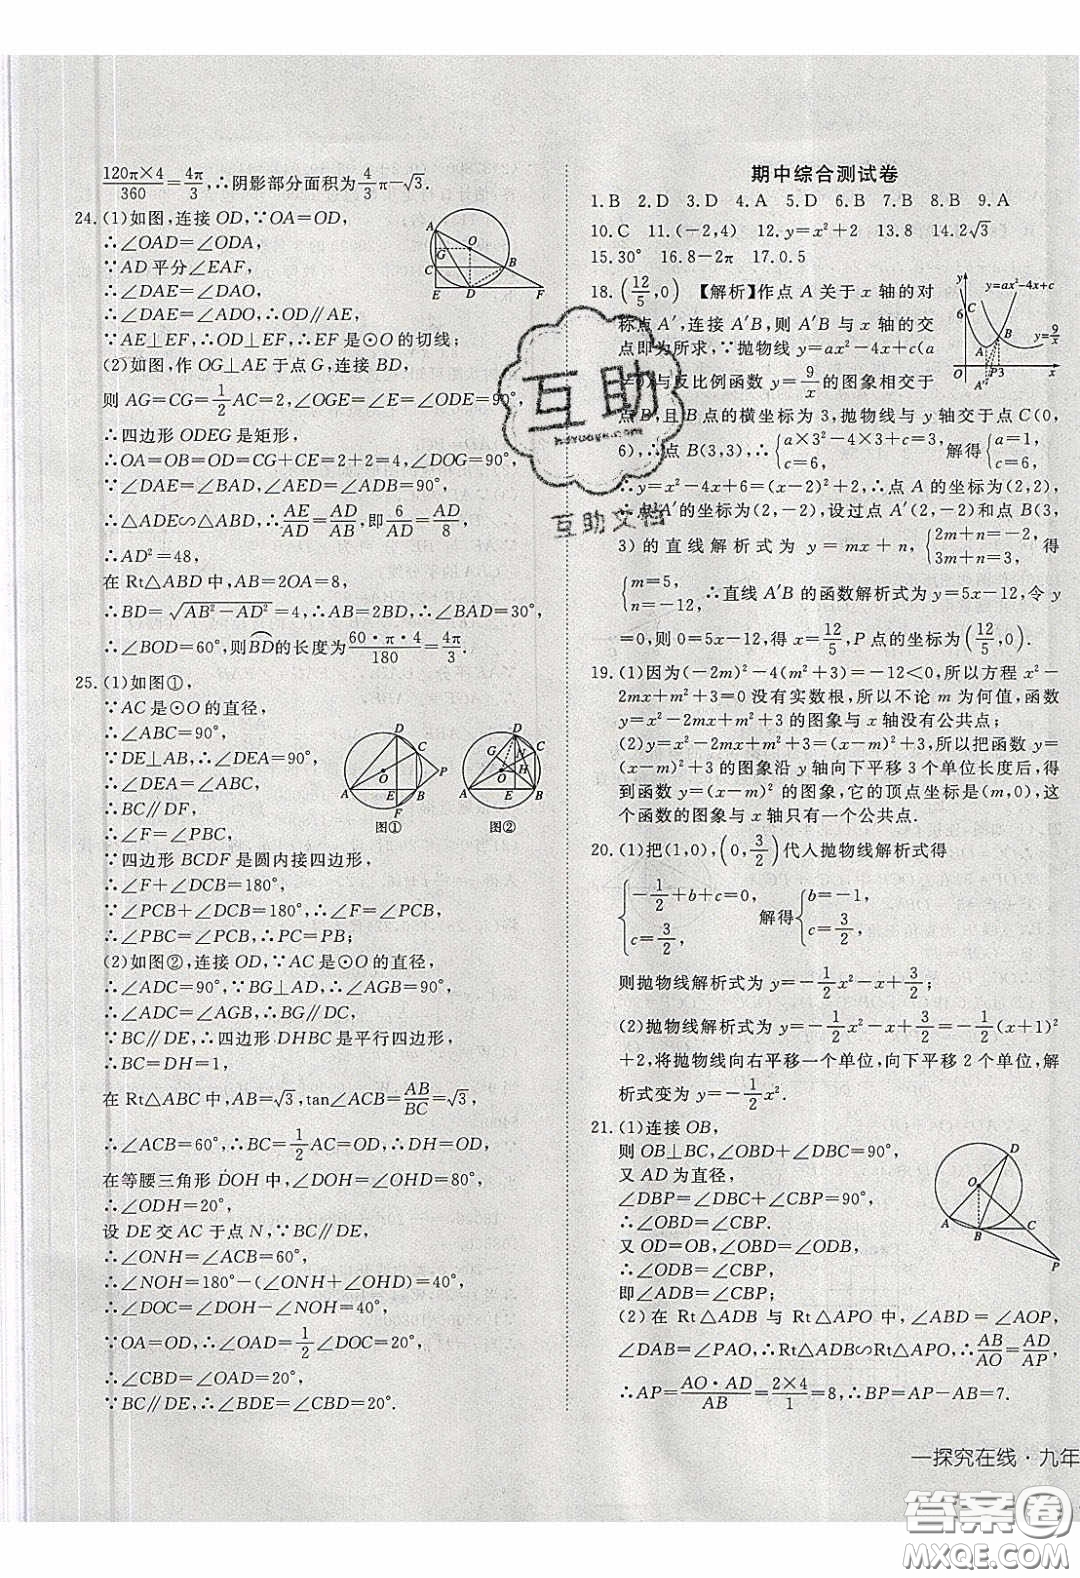 120π×4/360=4π/3,∴阴影部分面积为4/3π-√3.
24.(1)如图,连接OD,∵OA=OD,
∴∠OAD=∠ODA,
∵AD平分∠EAF,
∴∠DAE=∠DAO,
∴∠DAE=∠ADO,∴OD∥AE,
∵AE⊥EF,∴OD⊥EF,∴EF是⊙O的切线;
(2)如图,作OG⊥AE于点G,连接BD,
则AG=CG=1/2AC=2,∠OGE=∠E=∠ODE=90°,
∴四边形ODEG是矩形,
∴OA=OB=OD=CG+CE=2+2=4,∠DOG=90°,
∵∠DAE=∠BAD,∠AED=∠ADB=90°,
∴△ADE∽△ABD,∴AE/AD=AD/AB,即6/AD=AD/8,
∴AD²=48,
在Rt△ABD中,AB=2OA=8,
∴BD=√(AB²-AD²)=4,∴AB=2BD,∴∠BAD=30°,
∴∠BOD=60°,则BD的长度为60·π·4/180=4π/3.
25.(1)如图①,
∵AC是⊙O的直径,
∴∠ABC=90°,
∵DE⊥AB,∴∠DEA=90°,
∴∠DEA=∠ABC,
∴BC∥DF,
∴∠F=∠PBC,
∵四边形BCDF是圆内接四边形,
∴∠F+∠DCB=180°,
∵∠PCB+∠DCB=180°,∴∠F=∠PCB,
∴∠PBC=∠PCB,∴PC=PB;
(2)如图②,连接OD,∵AC是⊙O的直径,
∴∠ADC=90°,∵BG⊥AD,∴∠AGB=90°,
∴∠ADC=∠AGB,∴BG∥DC,
∵BC∥DE,∴四边形DHBC是平行四边形,
∴BC=DH=1,
在Rt△ABC中,AB=√3,tan∠ACB=AB/BC=√3,
∴∠ACB=60°,∴BC=1/2AC=OD,∴DH=OD,
在等腰三角形DOH中,∠DOH=∠OHD=80°,
∴∠ODH=20°,
设DE交AC于点N,∵BC∥DE,
∴∠ONH=∠ACB=60°,
∴∠NOH=180°-(∠ONH+∠OHD)=40°,
∴∠DOC=∠DOH-∠NOH=40°,
∵OA=OD,∴∠OAD=1/2∠DOC=20°,
∴∠CBD=∠OAD=20°,
∵BC∥DE,∴∠BDE=∠CBD=20°.
图① 图②
期中综合测试卷
1.B 2.D 3.D 4.A 5.D 6.D 7.B 8.B 9.A
10.C 11.(-2,4) 12.y=x²+2 13.8 14.2√3
15.30° 16.8-2π 17.0.5
18.(12/5,0) 【解析】作点A关于x轴的对
称点A′,连接A′B,则A′B与x轴的交
点即为所求,∵抛物线y=ax²-4x+c(a
≠0)与反比例函数y=9/x的图象相交于
点B,且B点的横坐标为3,抛物线与y轴交于点C(0,
6),∴点B(3,3),∴{a×3²-4×3+c=3, c=6, 解得{a=1, c=6,
∴y=x²-4x+6=(x-2)²+2,∴点A的坐标为(2,2),
∴点A′的坐标为(2,-2),设过点A′(2,-2)和点B(3,
3)的直线解析式为y=mx+n,{2m+n=-2, 3m+n=3, 得
{m=5, n=-12,∴直线A′B的函数解析式为y=5x-12,令y
=0,则0=5x-12,得x=12/5,P点的坐标为(12/5,0).
19.(1)因为(-2m)²-4(m²+3)=-12<0,所以方程x²-
2mx+m²+3=0没有实数根,所以不论m为何值,函数
y=x²-2mx+m²+3的图象与x轴没有公共点;
(2)y=x²-2mx+m²+3=(x-m)²+3,所以把函数y=
(x-m)²+3的图象沿y轴向下平移3个单位长度后,得
到函数y=(x-m)²的图象,它的顶点坐标是(m,0),这
个函数的图象与x轴只有一个公共点.
20.(1)把(1,0),(0,3/2)代入抛物线解析式得
{-1/2+b+c=0, c=3/2, 解得{b=-1, c=3/2,
则抛物线解析式为y=-1/2x²-x+3/2;
(2)抛物线解析式为y=-1/2x²-x+3/2=-1/2(x+1)²
+2,将抛物线向右平移一个单位,向下平移2个单位,解
析式变为y=-1/2x².
21.(1)连接OB,
则OB⊥BC,∠OBD+∠DBC=90°,
又AD为直径,
∠DBP=∠DBC+∠CBP=90°,
∴∠OBD=∠CBP.
又OD=OB,∠OBD=∠ODB,
∴∠ODB=∠CBP,
即∠ADB=∠CBP;
(2)在Rt△ADB与Rt△APO中,∠ABD=∠AOP,
∠DAB=∠PAO,∴Rt△ADB∽Rt△APO,∴AB/AO=AD/AP,
∴AP=AO·AD/AB=2×4/1=8,∴BP=AP-AB=7.
互助
互助文档
一探究在线·九年
答案圈
MXQE.COM